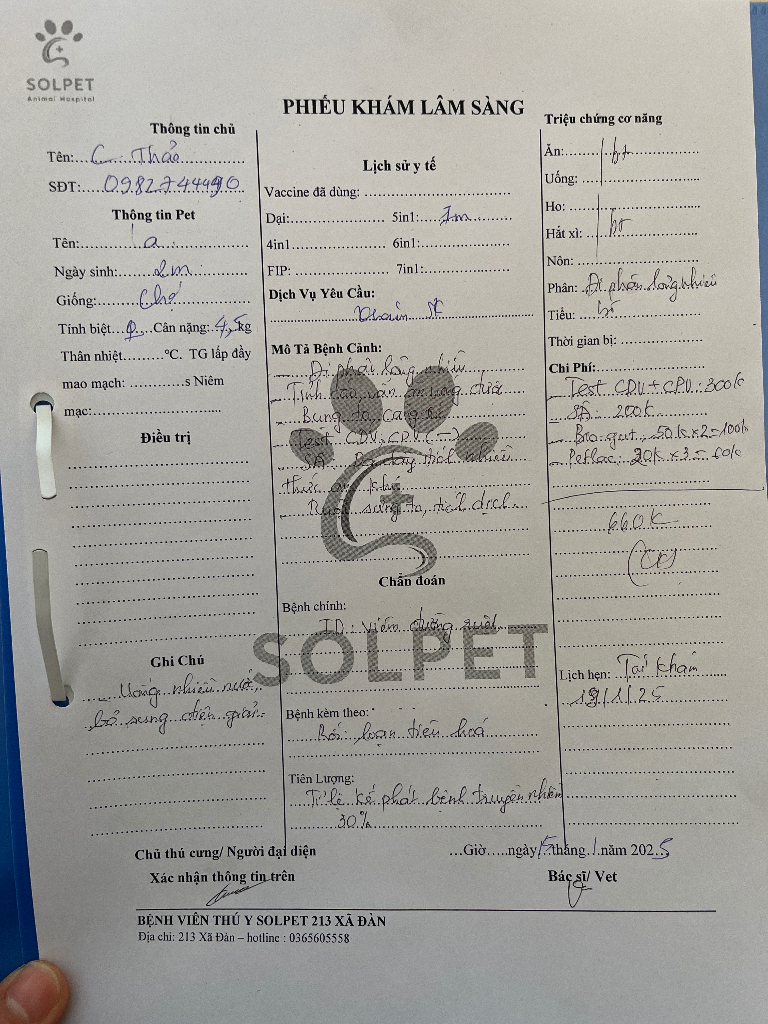 SOLPET
Animal Hospital
PHIẾU KHÁM LÂM SÀNG
Thông tin chủ
Tên: C. Thảo
SĐT: 0982744490
Thông tin Pet
Tên:
Ngày sinh: 2m
Giống: Chó
Tính biệt Cân nặng: 4,5kg
Thân nhiệt.........°C. TG lấp đầy
mao mạch: ............s Niêm
mạc:
Điều trị
Ghi Chú
Uống nhiều nước,
bổ sung điện giải
Lịch sử y tế
Vaccine đã dùng:
Dại: 5in1: 1m
4in1 6in1:
FIP: 7in1:
Dịch Vụ Yêu Cầu:
Khám SK
Mô Tả Bệnh Cảnh:
Đi phân lỏng nhiều
Tỉnh táo, vẫn ăn uống được
Bụng to, căng
Test CDV, CPV (-)
SÂ: Dạ dày tích nhiều
thức ăn khó
Ruột sưng to, tích dịch.
Chẩn đoán
Bệnh chính:
TD: viêm đường ruột
SOLPET
Bệnh kèm theo:
Rối loạn tiêu hoá
Tiên Lượng:
Tỉ lệ kế phát bệnh truyền nhiễm
30%
Triệu chứng cơ năng
Ăn: bt
Uống:
Ho:
Hắt xì: bt
Nôn:
Phân: Đi phân lỏng nhiều
Tiểu: bt
Thời gian bị:
Chi Phí:
Test CDV + CPV: 300k
SÂ 200k
Bio gut 50k x 2 = 100k
Peflac: 20k x 3 = 60k
660k
Lịch hẹn: Tái khám
18/1/25
Chủ thú cưng/ Người đại diện
Xác nhận thông tin trên
...Giờ.....ngày 15 tháng 1 năm 2025
Bác sĩ/ Vet
BỆNH VIỆN THÚ Y SOLPET 213 XÃ ĐÀN
Địa chỉ: 213 Xã Đàn – hotline : 0365605558